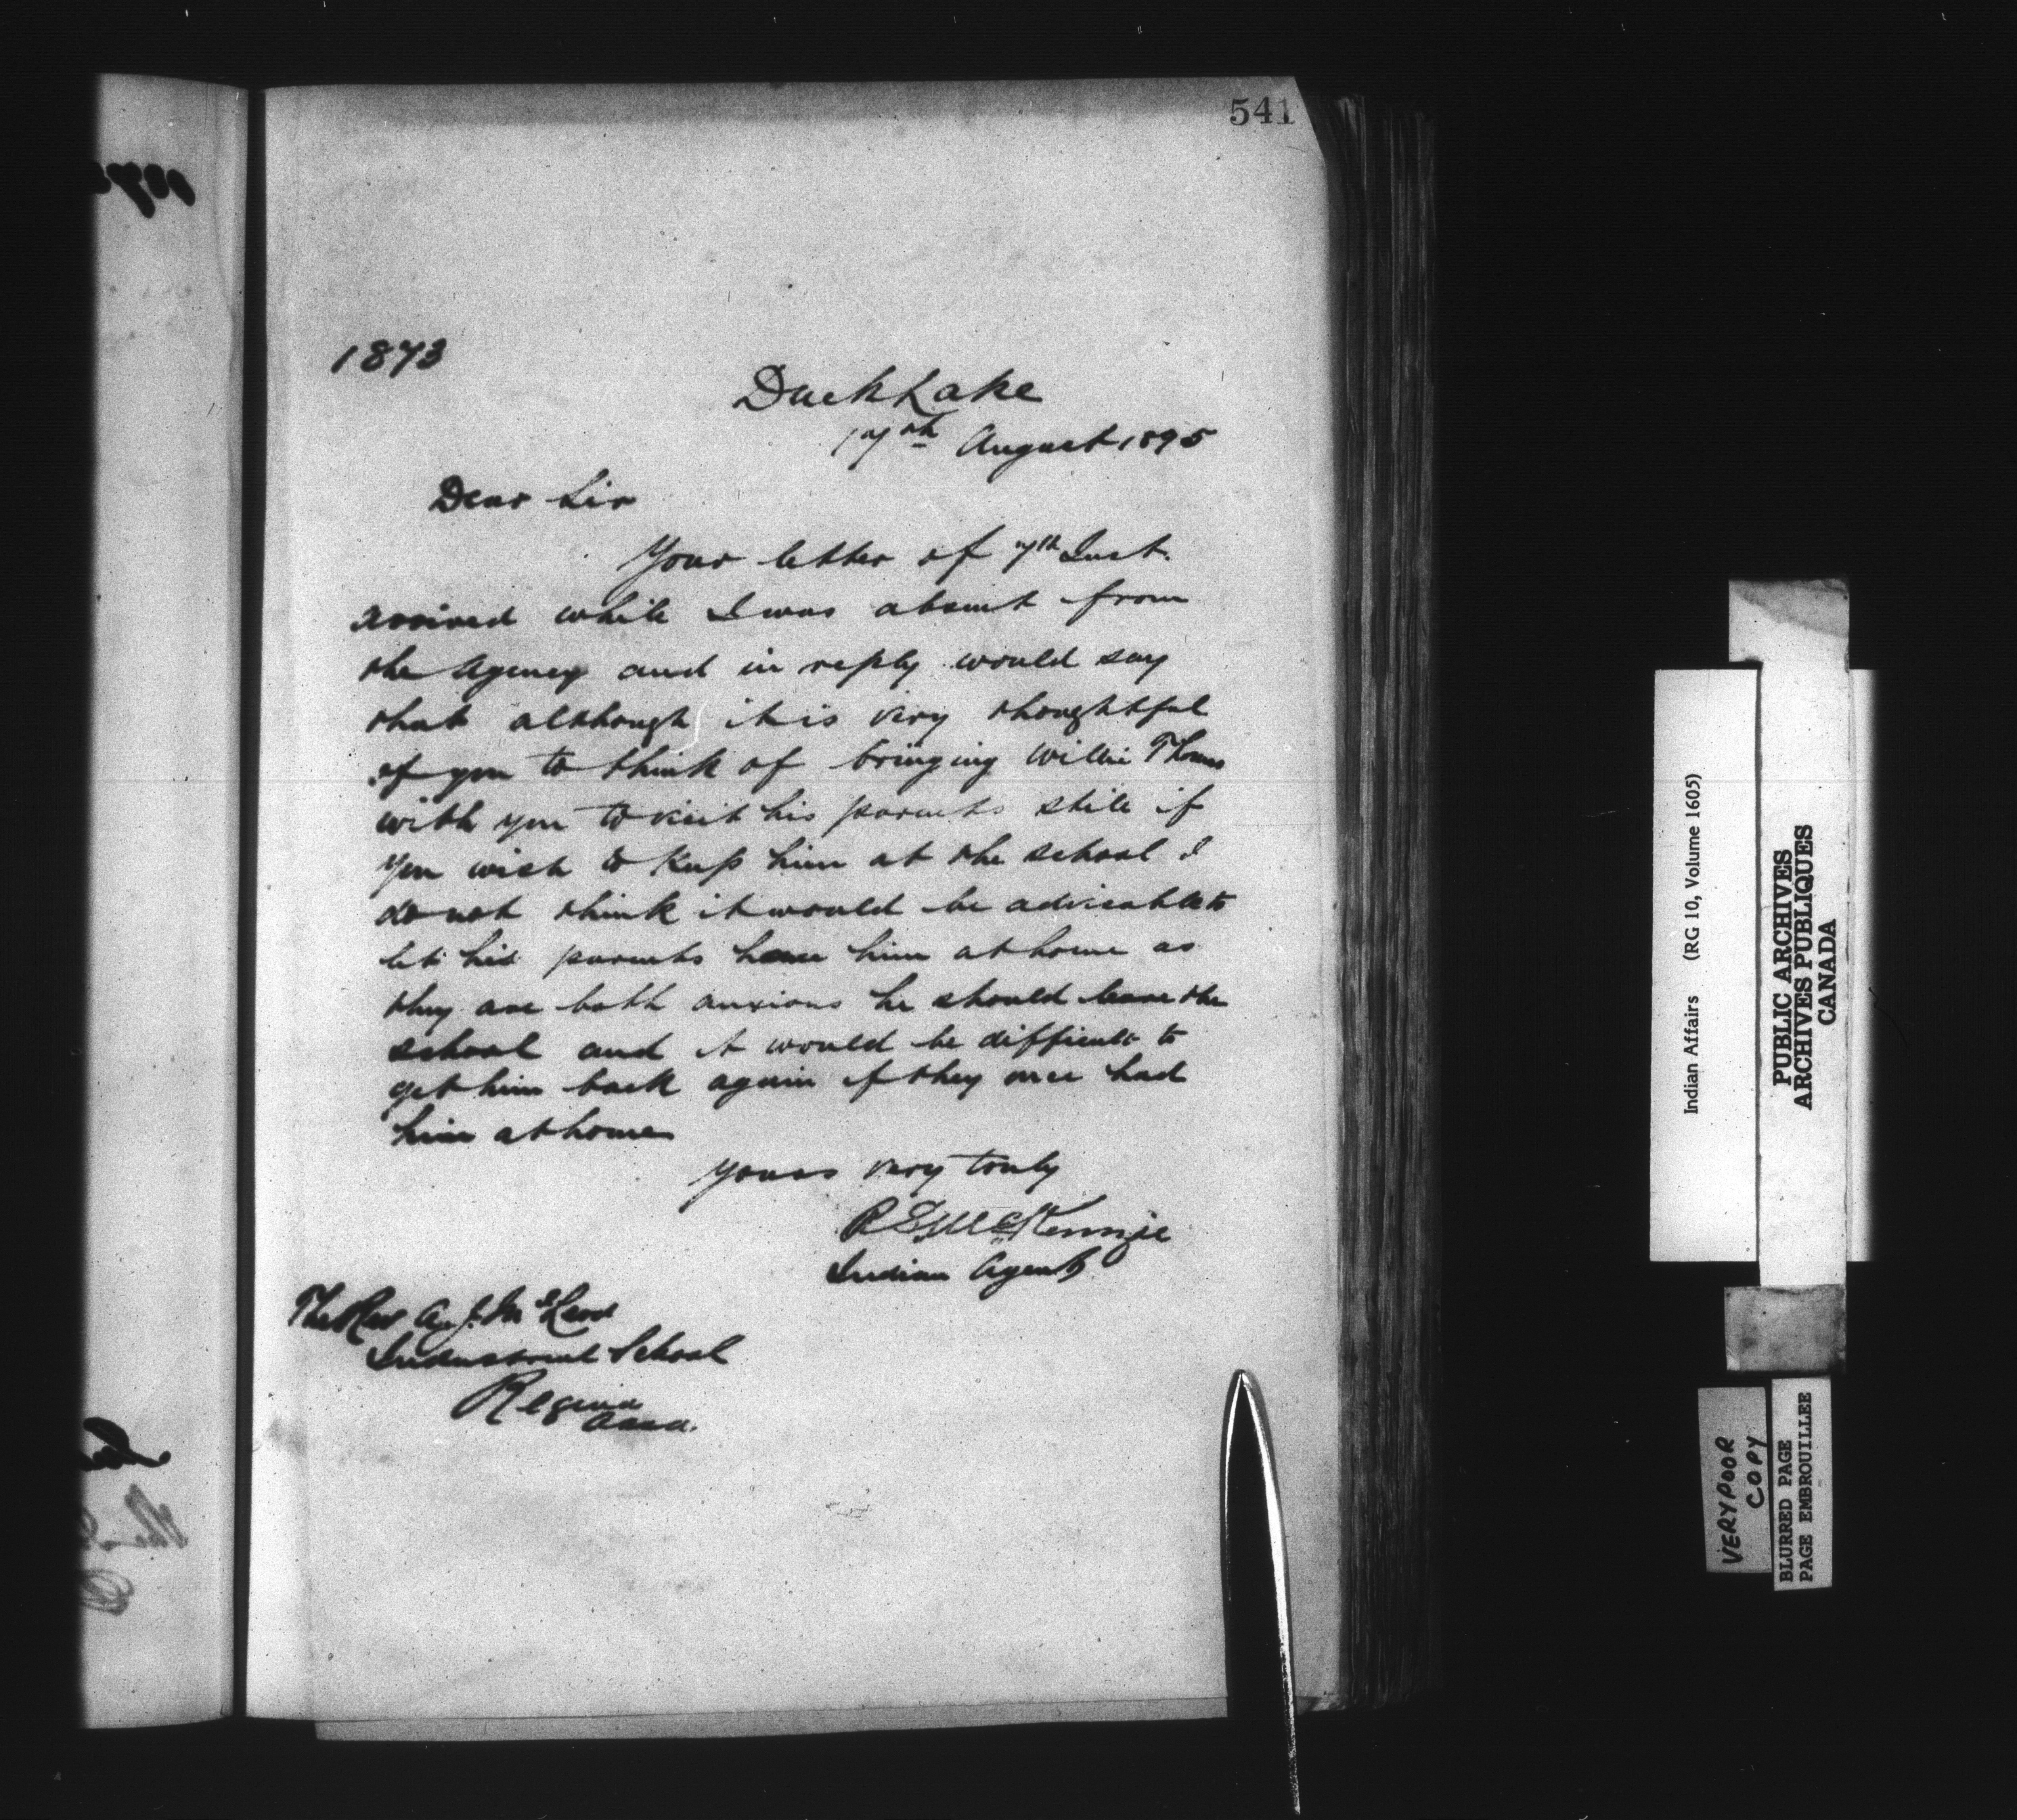 541
1873
Duck Lake
17th August 1895
Dear Sir
Your letter of 7th Inst.
arrived while I was absent from
the Agency and in reply would say
that although it is very thoughtful
of you to think of bringing Willie Thomas
with you to visit his parents still if
you wish to keep him at the school I
do not think it would be advisable to
let his parents have him at home as
they are both anxious he should leave the
school and it would be difficult to
get him back again if they once had
him at home
Yours very truly
R S McKenzie
Indian Agent
The Rev A. J. McLeod
Industrial School
Regina
Assa.
Indian Affairs (RG 10, Volume 1605)
PUBLIC ARCHIVES
ARCHIVES PUBLIQUES
CANADA
VERY POOR
COPY
BLURRED PAGE
PAGE EMBROUILLEE